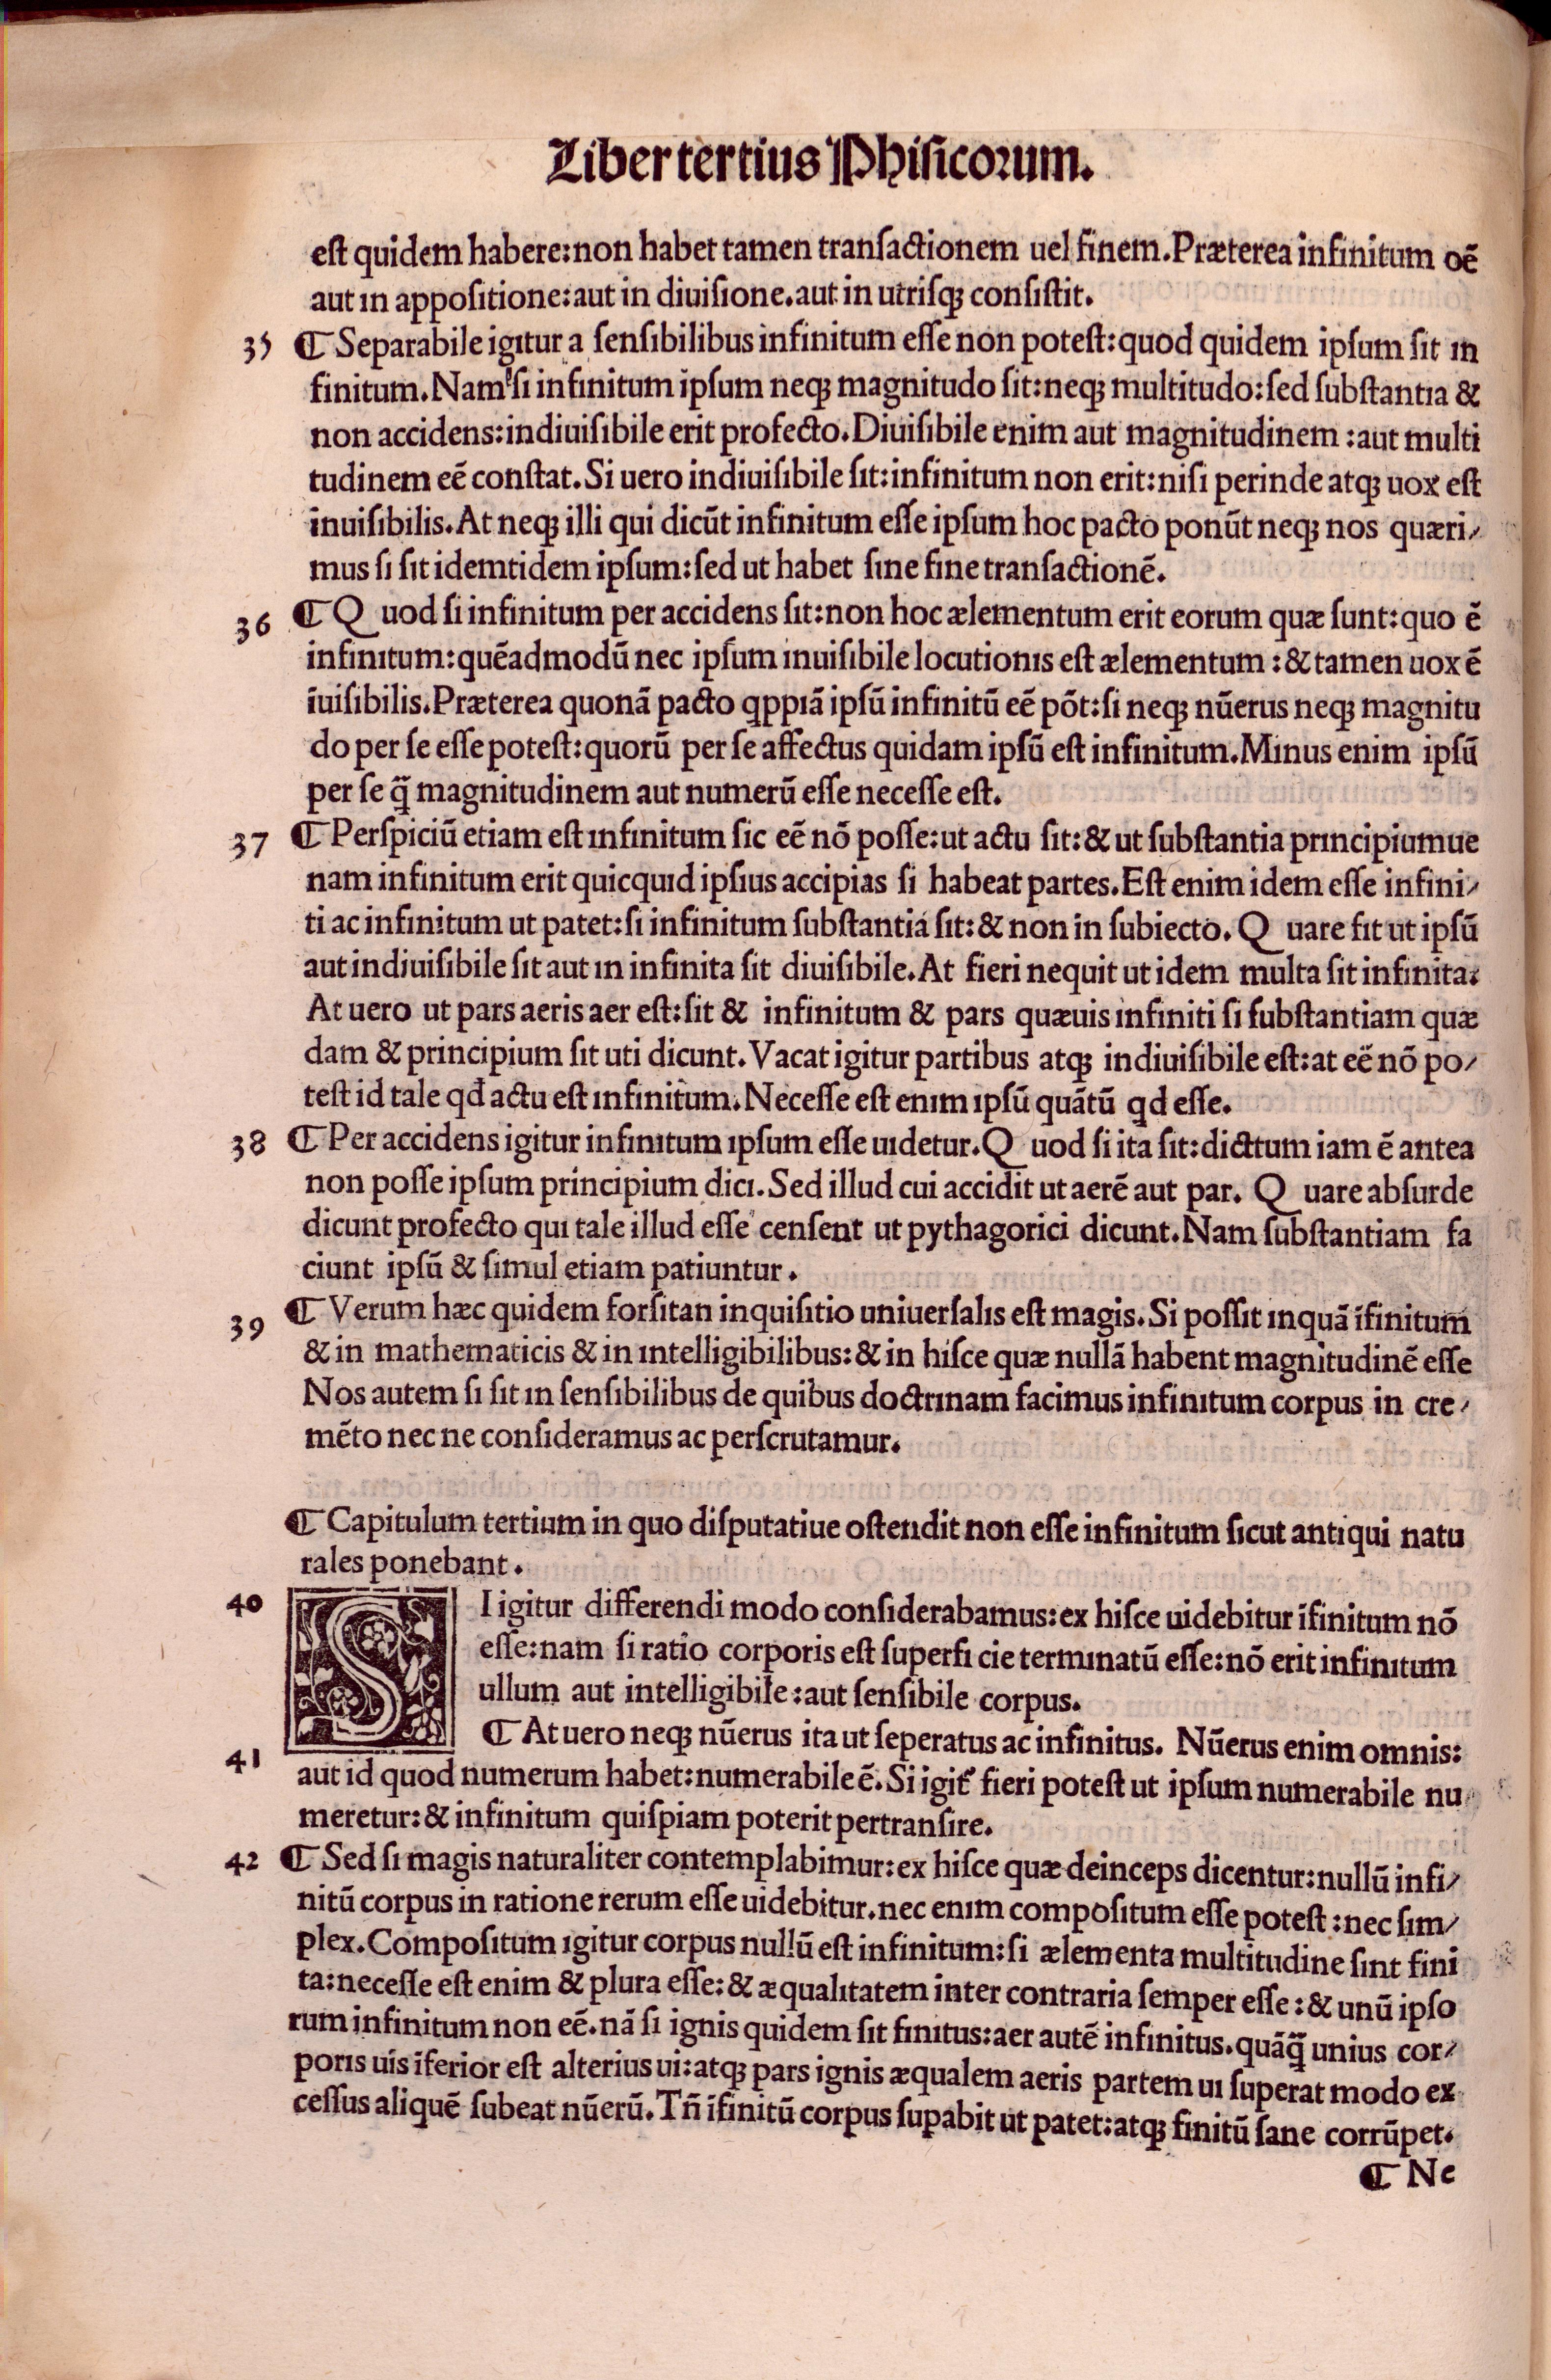 Liber tertius Phisicorum.
est quidem habere:non habet tamen transactionem uel finem.Præterea infinitum oē
aut in appositione:aut in diuisione.aut in utrisqꝫ consistit.
35 ¶ Separabile igitur a sensibilibus infinitum esse non potest:quod quidem ipsum sit in
finitum.Nam si infinitum ipsum neqꝫ magnitudo sit:neqꝫ multitudo:sed substantia &
non accidens:indiuisibile erit profecto.Diuisibile enim aut magnitudinem :aut multi
tudinem eē constat.Si uero indiuisibile sit:infinitum non erit:nisi perinde atqꝫ uox est
inuisibilis.At neqꝫ illi qui dicūt infinitum esse ipsum hoc pacto ponūt neqꝫ nos quæri/
mus si sit idemtidem ipsum:sed ut habet sine fine transactionē.
36 ¶ Quod si infinitum per accidens sit:non hoc ælementum erit eorum quæ sunt:quo ē
infinitum:quēadmodū nec ipsum inuisibile locutionis est ælementum :& tamen uox ē
īuisibilis.Præterea quonā pacto qppiā ipsū infinitū eē pōt:si neqꝫ nūerus neqꝫ magnitu
do per se esse potest:quorū per se affectus quidam ipsū est infinitum.Minus enim ipsū
per se q̄ magnitudinem aut numerū esse necesse est.
37 ¶ Perspiciū etiam est infinitum sic eē nō posse:ut actu sit:& ut substantia principiumue
nam infinitum erit quicquid ipsius accipias si habeat partes.Est enim idem esse infini/
ti ac infinitum ut patet:si infinitum substantia sit:& non in subiecto.Quare fit ut ipsū
aut indiuisibile sit aut in infinita sit diuisibile.At fieri nequit ut idem multa sit infinita:
At uero ut pars aeris aer est:sit & infinitum & pars quæuis infiniti si substantiam quæ
dam & principium sit uti dicunt.Vacat igitur partibus atqꝫ indiuisibile est:at eē nō po/
test id tale qd̄ actu est infinitum.Necesse est enim ipsū quātū qd esse.
38 ¶ Per accidens igitur infinitum ipsum esse uidetur.Quod si ita sit:dictum iam ē antea
non posse ipsum principium dici.Sed illud cui accidit ut aerē aut par. Quare absurde
dicunt profecto qui tale illud esse censent ut pythagorici dicunt.Nam substantiam fa
ciunt ipsū & simul etiam patiuntur.
39 ¶ Verum hæc quidem forsitan inquisitio uniuersalis est magis.Si possit inquā īfinitum
& in mathematicis & in intelligibilibus:& in hisce quæ nullā habent magnitudinē esse
Nos autem si sit in sensibilibus de quibus doctrinam facimus infinitum corpus in cre/
mēto nec ne consideramus ac perscrutamur.
¶ Capitulum tertium in quo disputatiue ostendit non esse infinitum sicut antiqui natu
rales ponebant.
40 SI igitur differendi modo considerabamus:ex hisce uidebitur īfinitum nō
esse:nam si ratio corporis est superfi cie terminatū esse:nō erit infinitum
ullum aut intelligibile:aut sensibile corpus.
¶ At uero neqꝫ nūerus ita ut seperatus ac infinitus. Nūerus enim omnis:
41 aut id quod numerum habet:numerabile ē.Si igit᷑ fieri potest ut ipsum numerabile nu
meretur:& infinitum quispiam poterit pertransire.
42 ¶ Sed si magis naturaliter contemplabimur:ex hisce quæ deinceps dicentur:nullū infi/
nitū corpus in ratione rerum esse uidebitur.nec enim compositum esse potest :nec sim/
plex.Compositum igitur corpus nullū est infinitum:si ælementa multitudine sint fini
ta:necesse est enim & plura esse:& æqualitatem inter contraria semper esse:& unū ipso
rum infinitum non eē.nā si ignis quidem sit finitus:aer autē infinitus.quāq̄ unius cor/
poris uis īferior est alterius ui:atqꝫ pars ignis æqualem aeris partem ui superat modo ex
cessus aliquē subeat nūerū.Tn̄ īfinitū corpus supabit ut patet:atqꝫ finitū sane corrūpet.
¶ Ne